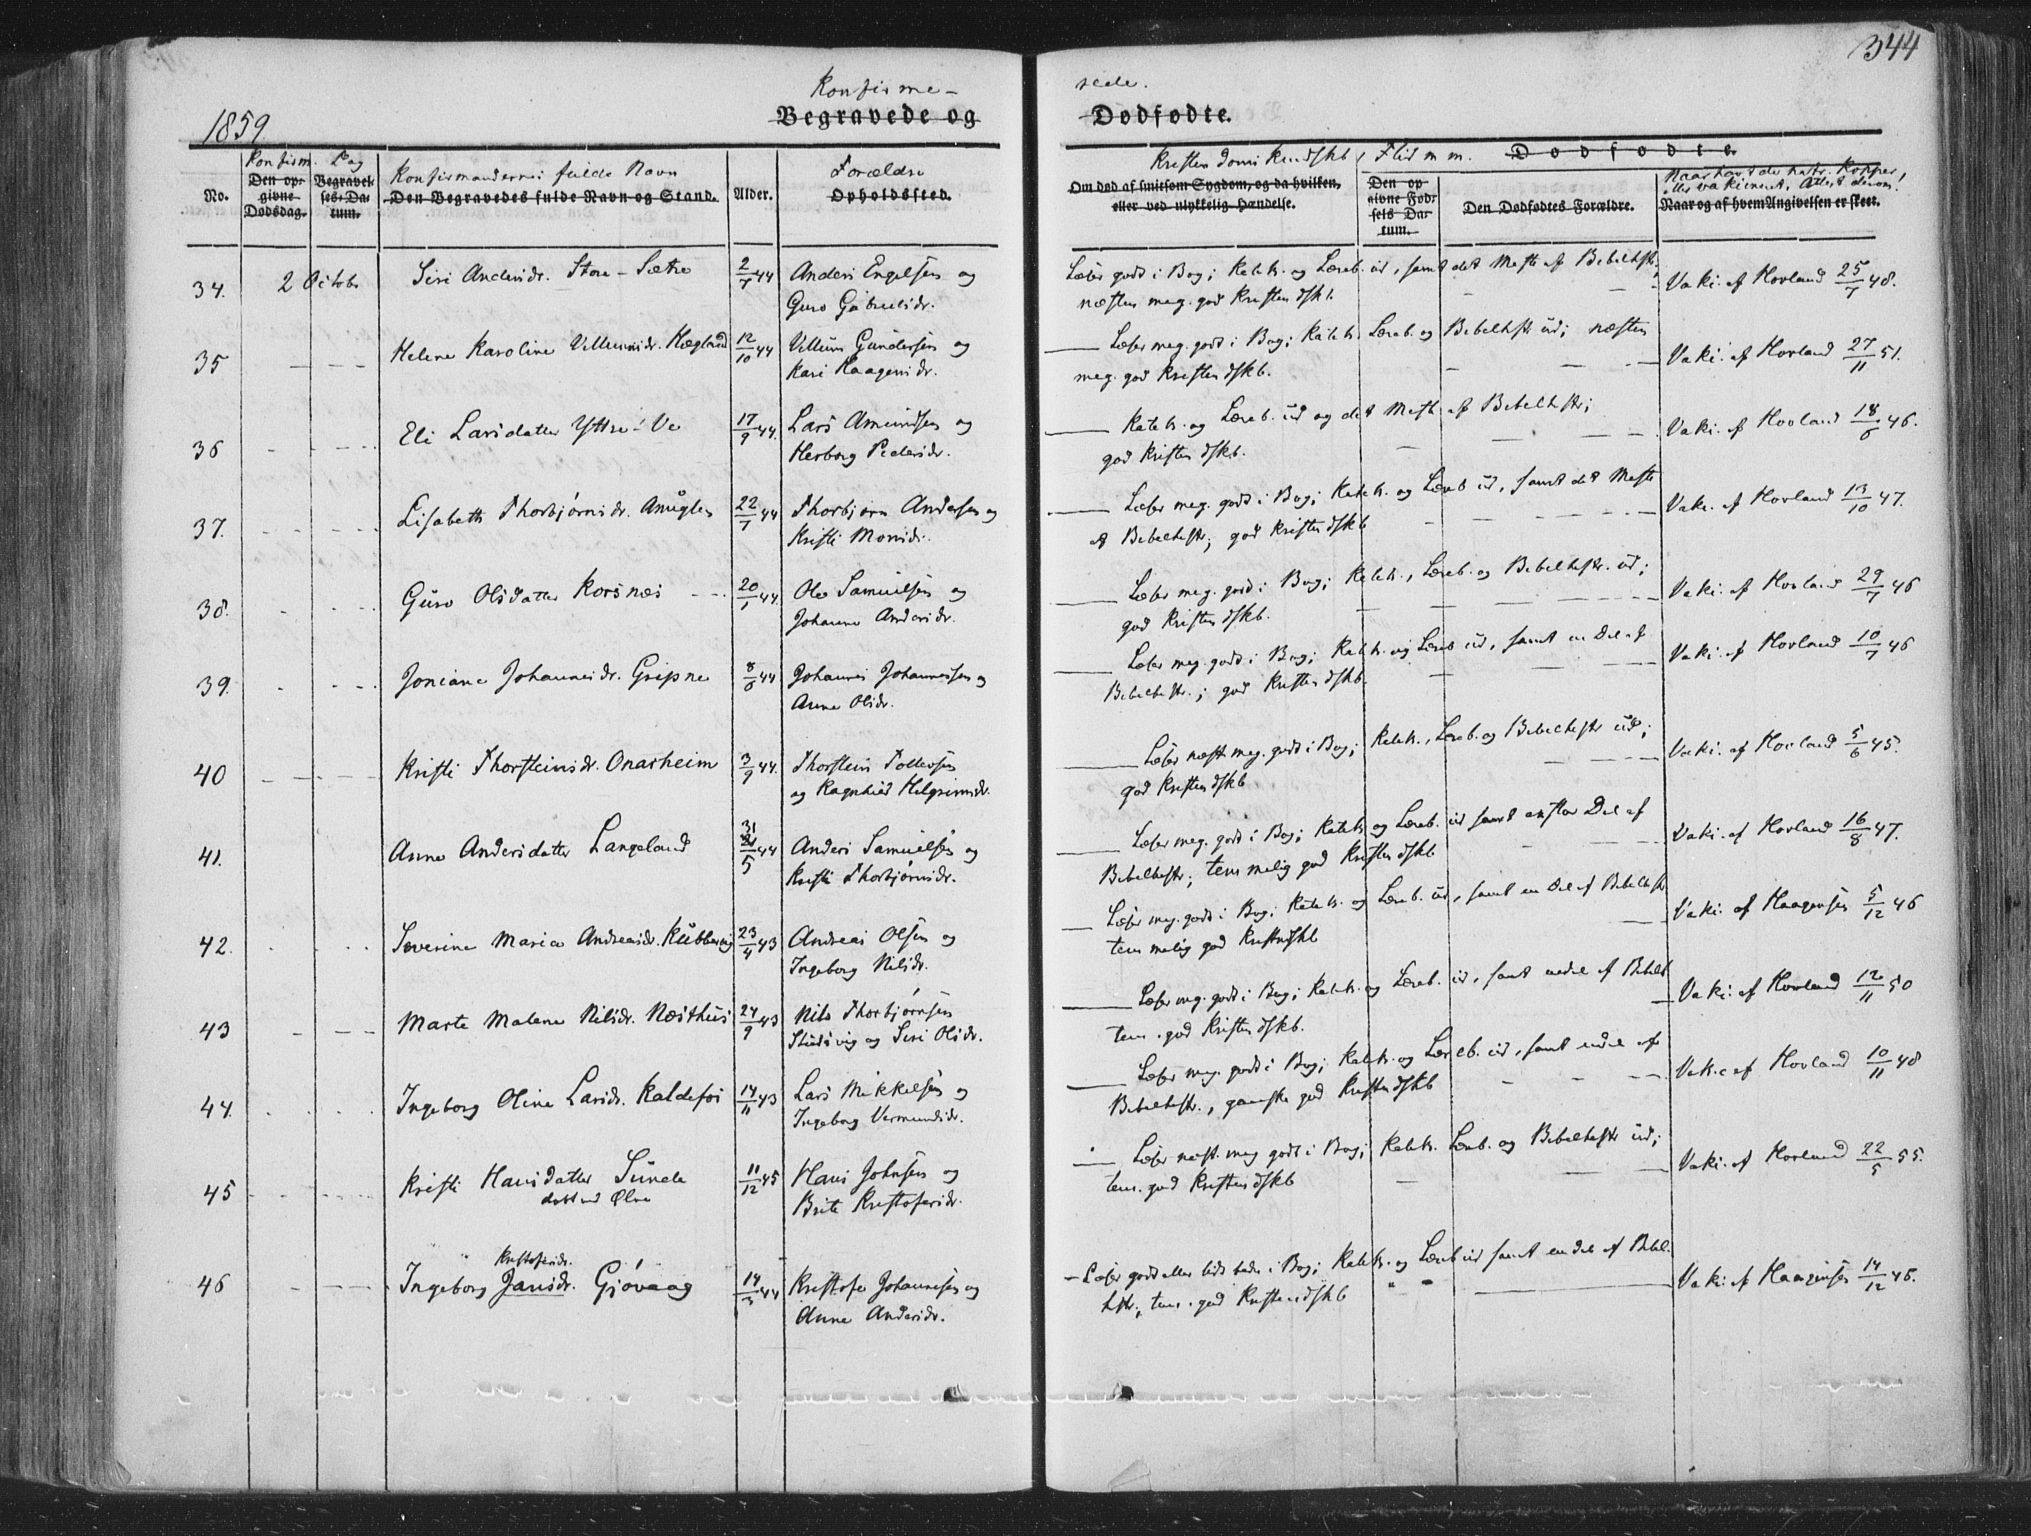 344
1859
Konfirme-
rede.
Begravede og
Dødfødte.
No.
Konfirm.
Dag
Den op-
givne
Dødsdag.
Begravel-
ses-Da-
tum.
Konfirmandernes fulde Navn
Den Begravedes fulde Navn og Stand.
Alder.
Forældre
Opholdssted.
Kristendomskundskb, Flid m m.
Om død af smitsom Sygdom, og da hvilken,
eller ved ulykkelig Hændelse.
Dødfødte.
Den op-
givne Fød-
sels Da-
tum.
Den Dødfødtes Forældre.
Naar havt de natr. Kopper,
eller vakcineret, Attest derom.
Naar og af hvem Angivelsen er skeet.
34. 2 Octobr Siri Andersdr. Store-Sætre 2/7 44 Anders Engelsen og
Guro Gabrielsdr.
Læser godt i Bog; Katek. og Læreb. ud, samt det Meste af Bibelhist.;
næsten meg. god Kristendskb.
Vaki. af Hovland 25/7 48.
35 Helene Karoline Villumsdr. Hægland 12/10 44 Villum Gundersen og
Kari Haagensdr.
Læser meg. godt i Bog; Katek. Læreb. og Bibelhist ud; næsten
meg. god Kristendskb.
Vaki. af Hovland 27/11 51.
36 Eli Larsdatter Yttre-Ve 17/9 44. Lars Amundsen og
Herborg Pedersdr.
Katek. og Læreb. ud og det Meste af Bibelhistr;
god Kristendskb.
Vaki. af Hovland 18/6 46.
37. Lisabeth Thorbjørnsdr. Amuglen 22/7 44 Thorbjørn Andersen og
Kristi Monsdr.
Læser meg. godt i Bog; Katek. og Læreb ud, samt det Meste
af Bibelhistr; god Kristendskb
Vaki. af Hovland 13/10 47.
38. Guro Olsdatter Korsnes 20/1 44. Ole Samuelsen og
Johanne Andersdr.
Læser meg. godt i Bog; Katek., Læreb. og Bibelhistr. ud;
god Kristendskb.
Vaki. af Hovland 29/7 46
39. Joniane Johannesdr. Gripne 8/6 44 Johannes Johannessen og
Anne Olsdr.
Læser meg. godt i Bog; Katek. og Læreb ud, samt en Del af
Bibelhistr.; god Kristendskb.
Vaki. af Hovland 10/7 46
40 Kristi Thorsteinsdr. Onarheim 3/9 44. Thorstein Tollefsen
og Ragnhild Helgrimsdr.
Læser næst meg. godt i Bog; Katek., Læreb. og Bibelhistr ud;
god Kristendskb
Vaki. af Hovland 5/6 45.
41. Anne Andersdatter Langeland 31/5 44 Anders Samuelsen og
Kristi Thorbjørnsdr.
Læser meg. godt i Bog; Katek og Læreb. ud samt en stor Del af
Bibelhistr; temmelig god Kristendskb
Vaki. af Hovland 16/8 47.
42. Severine Maria Andreasdr. Kubbervig 23/4 43 Andreas Olsen og
Ingeborg Nilsdr.
Læser meg. godt i Bog; Katek. og Læreb. ud, samt en Del af Bibelhist
temmelig god Kristendskb
Vaki. af Haagensen 5/12 46
43 Marte Malene Nilsdr. Næsthus 24/9 43 Nils Thorbjørnsen
Studsvig og Siri Olsdr.
Læser meg. godt i Bog; Katek. og Læreb. ud, samt endel af Bibelh
tem. god Kristendskb.
Vaki. af Hovland 12/11 50
44. Ingeborg Oline Larsdr. Kaldefos 14/11 43 Lars Mikkelsen og
Ingeborg Vermundsdr.
Læser meg. godt i Bog; Katek. og Læreb. ud, samt endel af
Bibelhistr., ganske god Kristendskb
Vaki. af Hovland 10/11 48
45 Kristi Hansdatter Sunde 11/12 45 Hans Johnsen og
Brite Kristofersdr.
Læser næst. meg godt i Bog; Katek. Læreb. og Bibelhistr ud;
tem. god Kristendskb
Vaki. af Hovland 22/5 55.
46 Ingeborg Jansdr. Gjøvaag 14/3 44 Kristofer Johannesen og
Kristofersdr.
Anne Andersdr.
Læser godt eller lidt bedre i Bog; Katek. og Læreb ud samt en del af Bibel.
hstr.; tem. god Kristendskb
Vaki. af Haagensen 14/12 45.